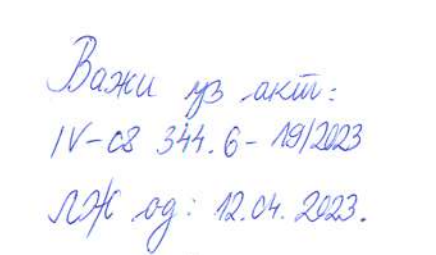 Важи уз акт:
IV-08 344.6-19/2023
ЛЖ од: 12.04.2023.